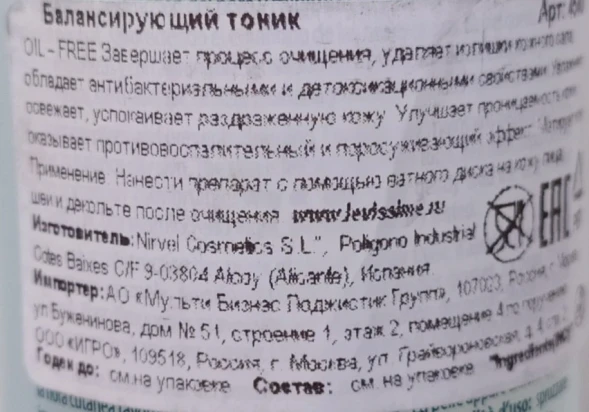 Балансирующий тоник Арт.
OIL - FREE Завершает процесс очищения, удаляет излишки кожного сала,
обладает антибактериальными и детоксикационными свойствами. Увлажняет,
освежает, успокаивает раздраженную кожу. Улучшает проницаемость кожи,
оказывает противовоспалительный и поросуживающий эффект.
Применение: Нанести препарат с помощью ватного диска на кожу лица,
шеи и декольте после очищения. www.levissime.ru
Изготовитель: Nirvel Cosmetics S.L", Poligono Industrial
Cotes Baixes C/F 9-03804 Alcoy (Alicante), Испания. EAC
Импортер: АО «Мульти Бизнес Лоджистик Групп», 107023, Россия, г.
ул Буженинова, дом № 51, строение 1, этаж 2, помещение 4 по поручению
ООО «ИГРО», 109518, Россия, г. Москва, ул. Грайвороновская, 4,
Годен до: см.на упаковке. Состав: см. на упаковке. "Ingredients
d'uso: